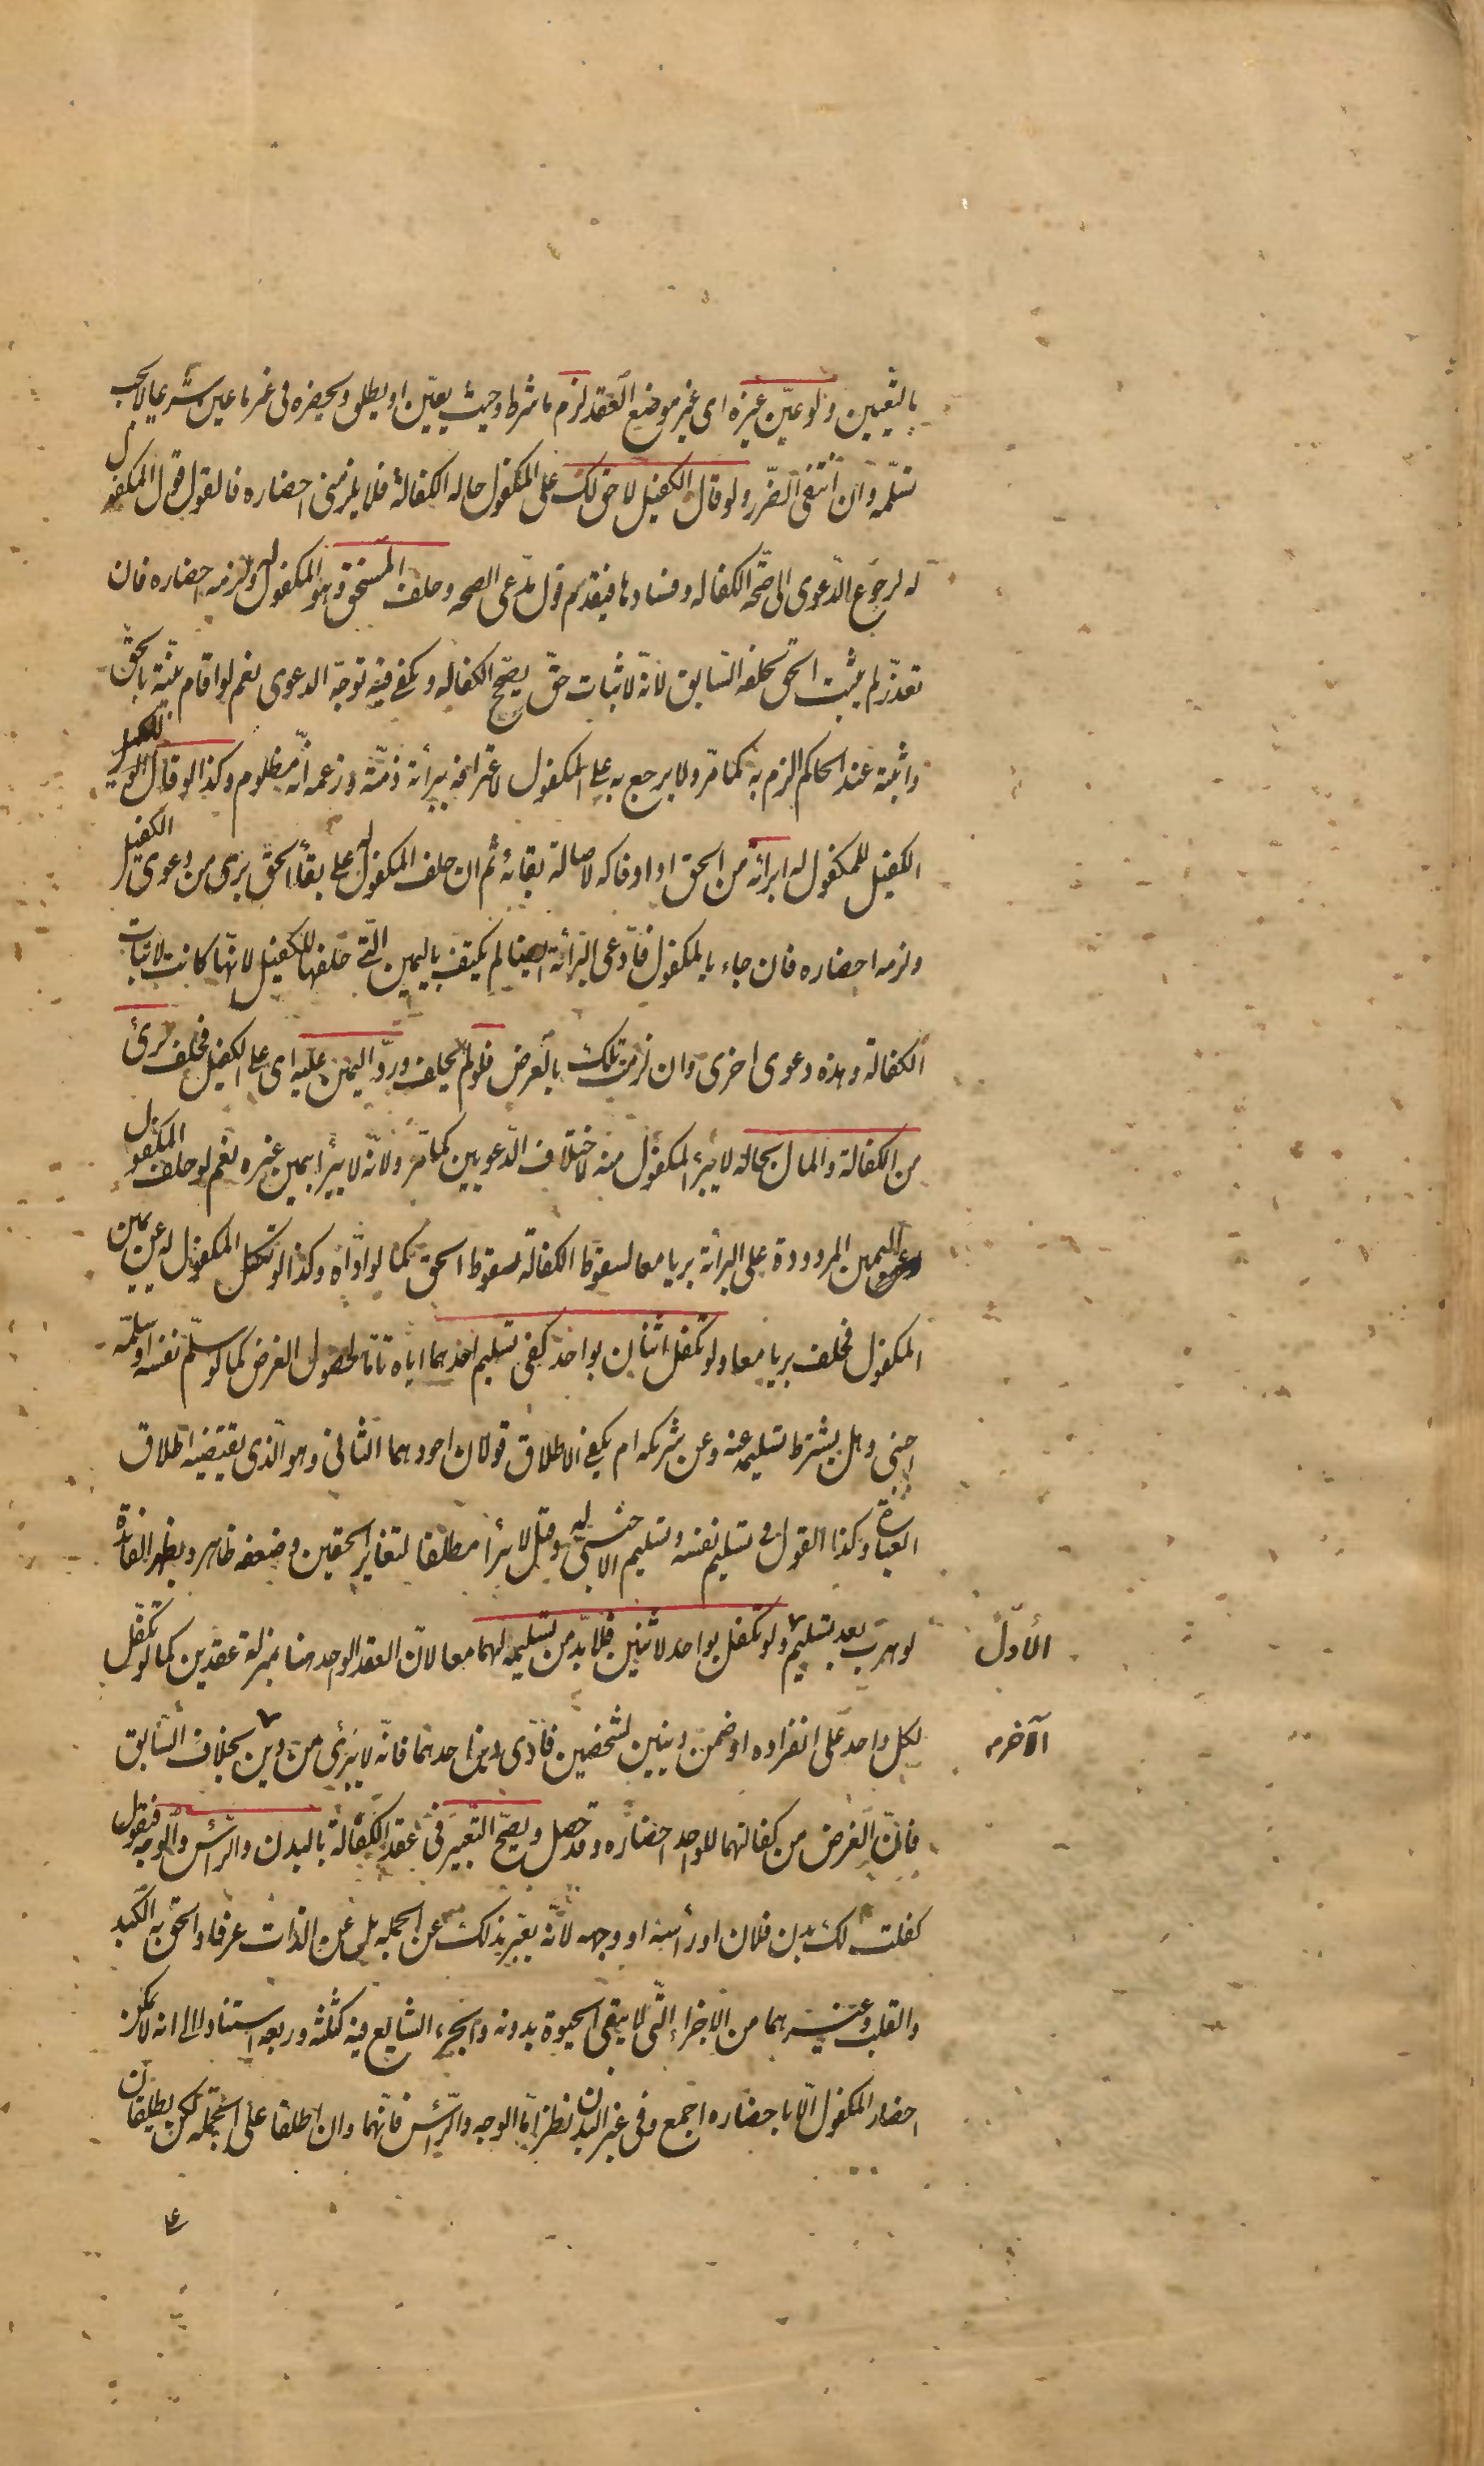 بالتعيين ولو عيّن غيره اى غير موضع العقد لزم ما شرط وحيث يعيّن او يطلق ويحضره فى غير ما عين شرعا لا يجب
تسلّمه وان انتفى الضّرر ولو قال الكفيل لا حق لك على المكفول حاله الكفالة فلا يلزمنى احضاره فالقول قول المكفول
له لرجوع الدّعوى الى صحّة الكفاله وفسادها فيقدم قول مدّعى الصحه وحلف المستحق وهو المكفول له ولزمه احضاره فان
تعذّر لم يثبت الحق بحلفه السّابق لانّه لاثبات حقّ يصحّح الكفاله ويكفى فيه توجّه الدعوى نعم لو اقام بيّنة بالحقّ
واثبته عند الحاكم الزم به كما مرّ ولا يرجع به على المكفول لاعترافه ببرأئة ذمّته وزعمه انّه مظلوم وكذا لو قال
الكفيل للمكفول له ابرأته من الحق او اوفاكه لاصالة بقائه ثم ان حلف المكفول له على بقأ الحق برى من دعوى الكفيل
ولزمه احضاره فان جاء بالمكفول فادّعى البرائة ايضا لم يكتف باليمين الّتى حلفها للكفيل لانّها كانت لاثبات
الكفالة وهذه دعوى اخرى وان لزمت تلك بالعرض فلو لم يحلف وردّ اليمين عليه اى على الكفيل فحلف برئ
من الكفالة والمال بحاله لا يبرأ المكفول منه لاختلاف الدّعويين كما مرّ ولانّه لا يبرأ بيمين غيره نعم لو حلف المكفول
اليمين المردودة على البرائة بريا معا لسقوط الكفالة لسقوط الحق كما لو ادّاه وكذا لو نكل المكفول له عن يمين
المكفول فحلف بريا معا ولو تكفل اثنان بواحد كفى تسليم احدهما اياه تامّا لحصول الغرض كما لو سلّم نفسه او سلّمه
اجنبى وهل يشترط تسليمه عنه وعن شريكه ام يكفى الاطلاق قولان اجودهما الثانى وهو الّذى يقتضيه اطلاق
العبارة وكذا القول فى تسليم نفسه وتسليم الاجنبى له وقيل لا يبرأ مطلقا لتغاير الحقين وضعفه ظاهر ويظهر الفائدة
لو هرب بعد تسليم الاوّل ولو تكفل بواحد لاثنين فلا بدّ من تسليمه لهما معا لانّ العقد الواحد هنا بمنزلة عقدين كما لو تكفّل
لكل واحد على انفراده او ضمن دينين لشخصين فادّى دين احدهما فانّه لا يبرئ من دين الآخر بخلاف السّابق
فانّ الغرض من كفالتهما للواحد احضاره وقد حصل ويصحّ التعبير فى عقد الكفالة بالبدن والرّأس والوجه فيقول
كفلت لك بدن فلان او رأسه او وجهه لانّه يعبّر بذلك عن الجمله بل عن الذات عرفا والحق به الكبد
والقلب وغيرهما من الاجزاء الّتى لا يبقى الحيوة بدونه والجزء الشايع فيه كثلثه وربعه استنادا الى انه لا يمكن
احضار المكفول الّا باحضاره اجمع وفى غير البدن نظر امّا الوجه والرّأس فانّهما وان اطلقا على الجمله لكن يطلقان
على